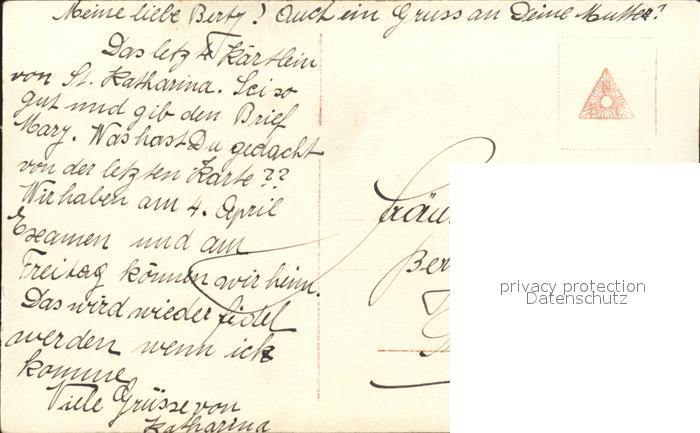 Meine liebe Berty! Auch ein Gruss an Deine Mutter!
Das letzte Kärtlein
von St. Katharina. Sei so
gut und gib den Brief
Mary. Was hast Du gedacht
von der letzten Karte??
Wir haben am 4. April
Examen und am
Freitag können wir heim.
Das wird wieder fidel
werden wenn ich
komme
Viele Grüsse von
Katharina
Fräu
Ber
privacy protection
Datenschutz